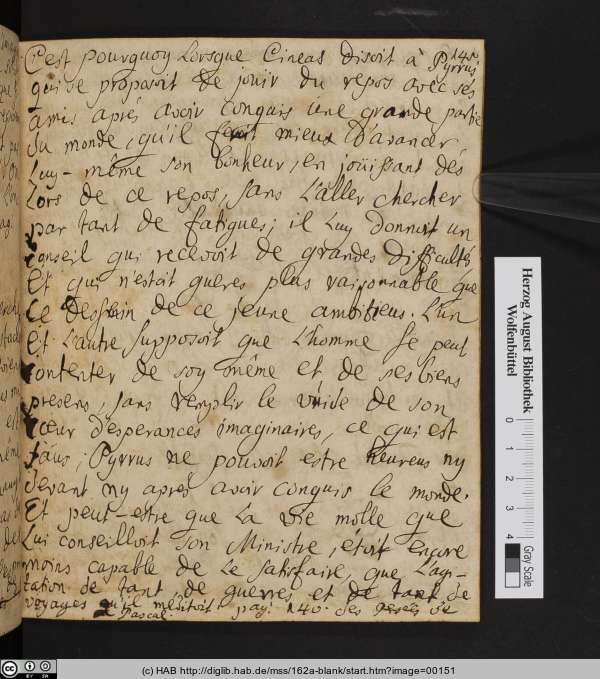 145
C'est pourquoy Lorsque Cineas disoit à Pyrrus
qui se proposoit de jouir du repos avec ses
amis aprés avoir conquis une grande partie
du monde, qu'il feroit mieux d'avancer
Luy-même son bonheur, en joüissant dés
Lors de ce repos, sans L'aller chercher
par tant de fatigues; il Luy donnoit un
conseil qui recevoit de grandes difficultés
Et qui n'estoit gueres plus raisonnable que
Le dessein de ce jeune ambitieus. L'un
Et L'autre supposoit que L'homme se peut
contenter de soy même et de ses biens
presens, sans remplir le vuide de son
cœur d'esperances imaginaires, ce qui est
faus; Pyrrus ne pouvoit estre heureus ny
devant ny aprés avoir conquis le monde.
Et peut-estre que La vie molle que
Lui conseilloit son Ministre, étoit encore
moins capable de Le satisfaire, que L'agi-
tation de tant de guerres et de tant de
voyages qu'il méditoit. pag. 140. des Pesées de
Pascal.
Herzog August Bibliothek
Wolfenbüttel
0 1 2 3 4
Gray Scale
(c) HAB http://diglib.hab.de/mss/162a-blank/start.htm?image=00151